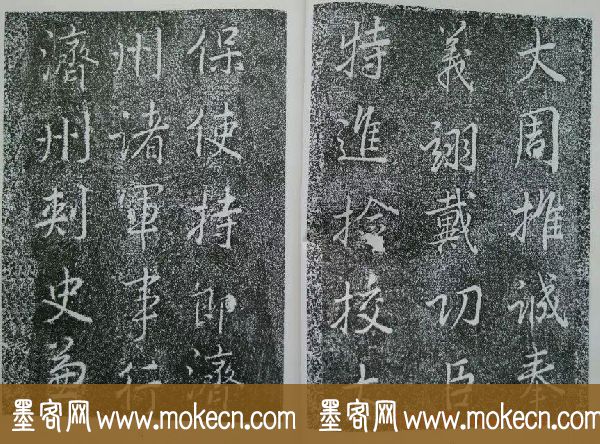 大周推誠奉
義翊戴功臣
特進撿挍
保使持節濟
州諸軍事行
濟州刺史兼
墨客网 www.mokecn.com 墨客网 www.mokecn.com